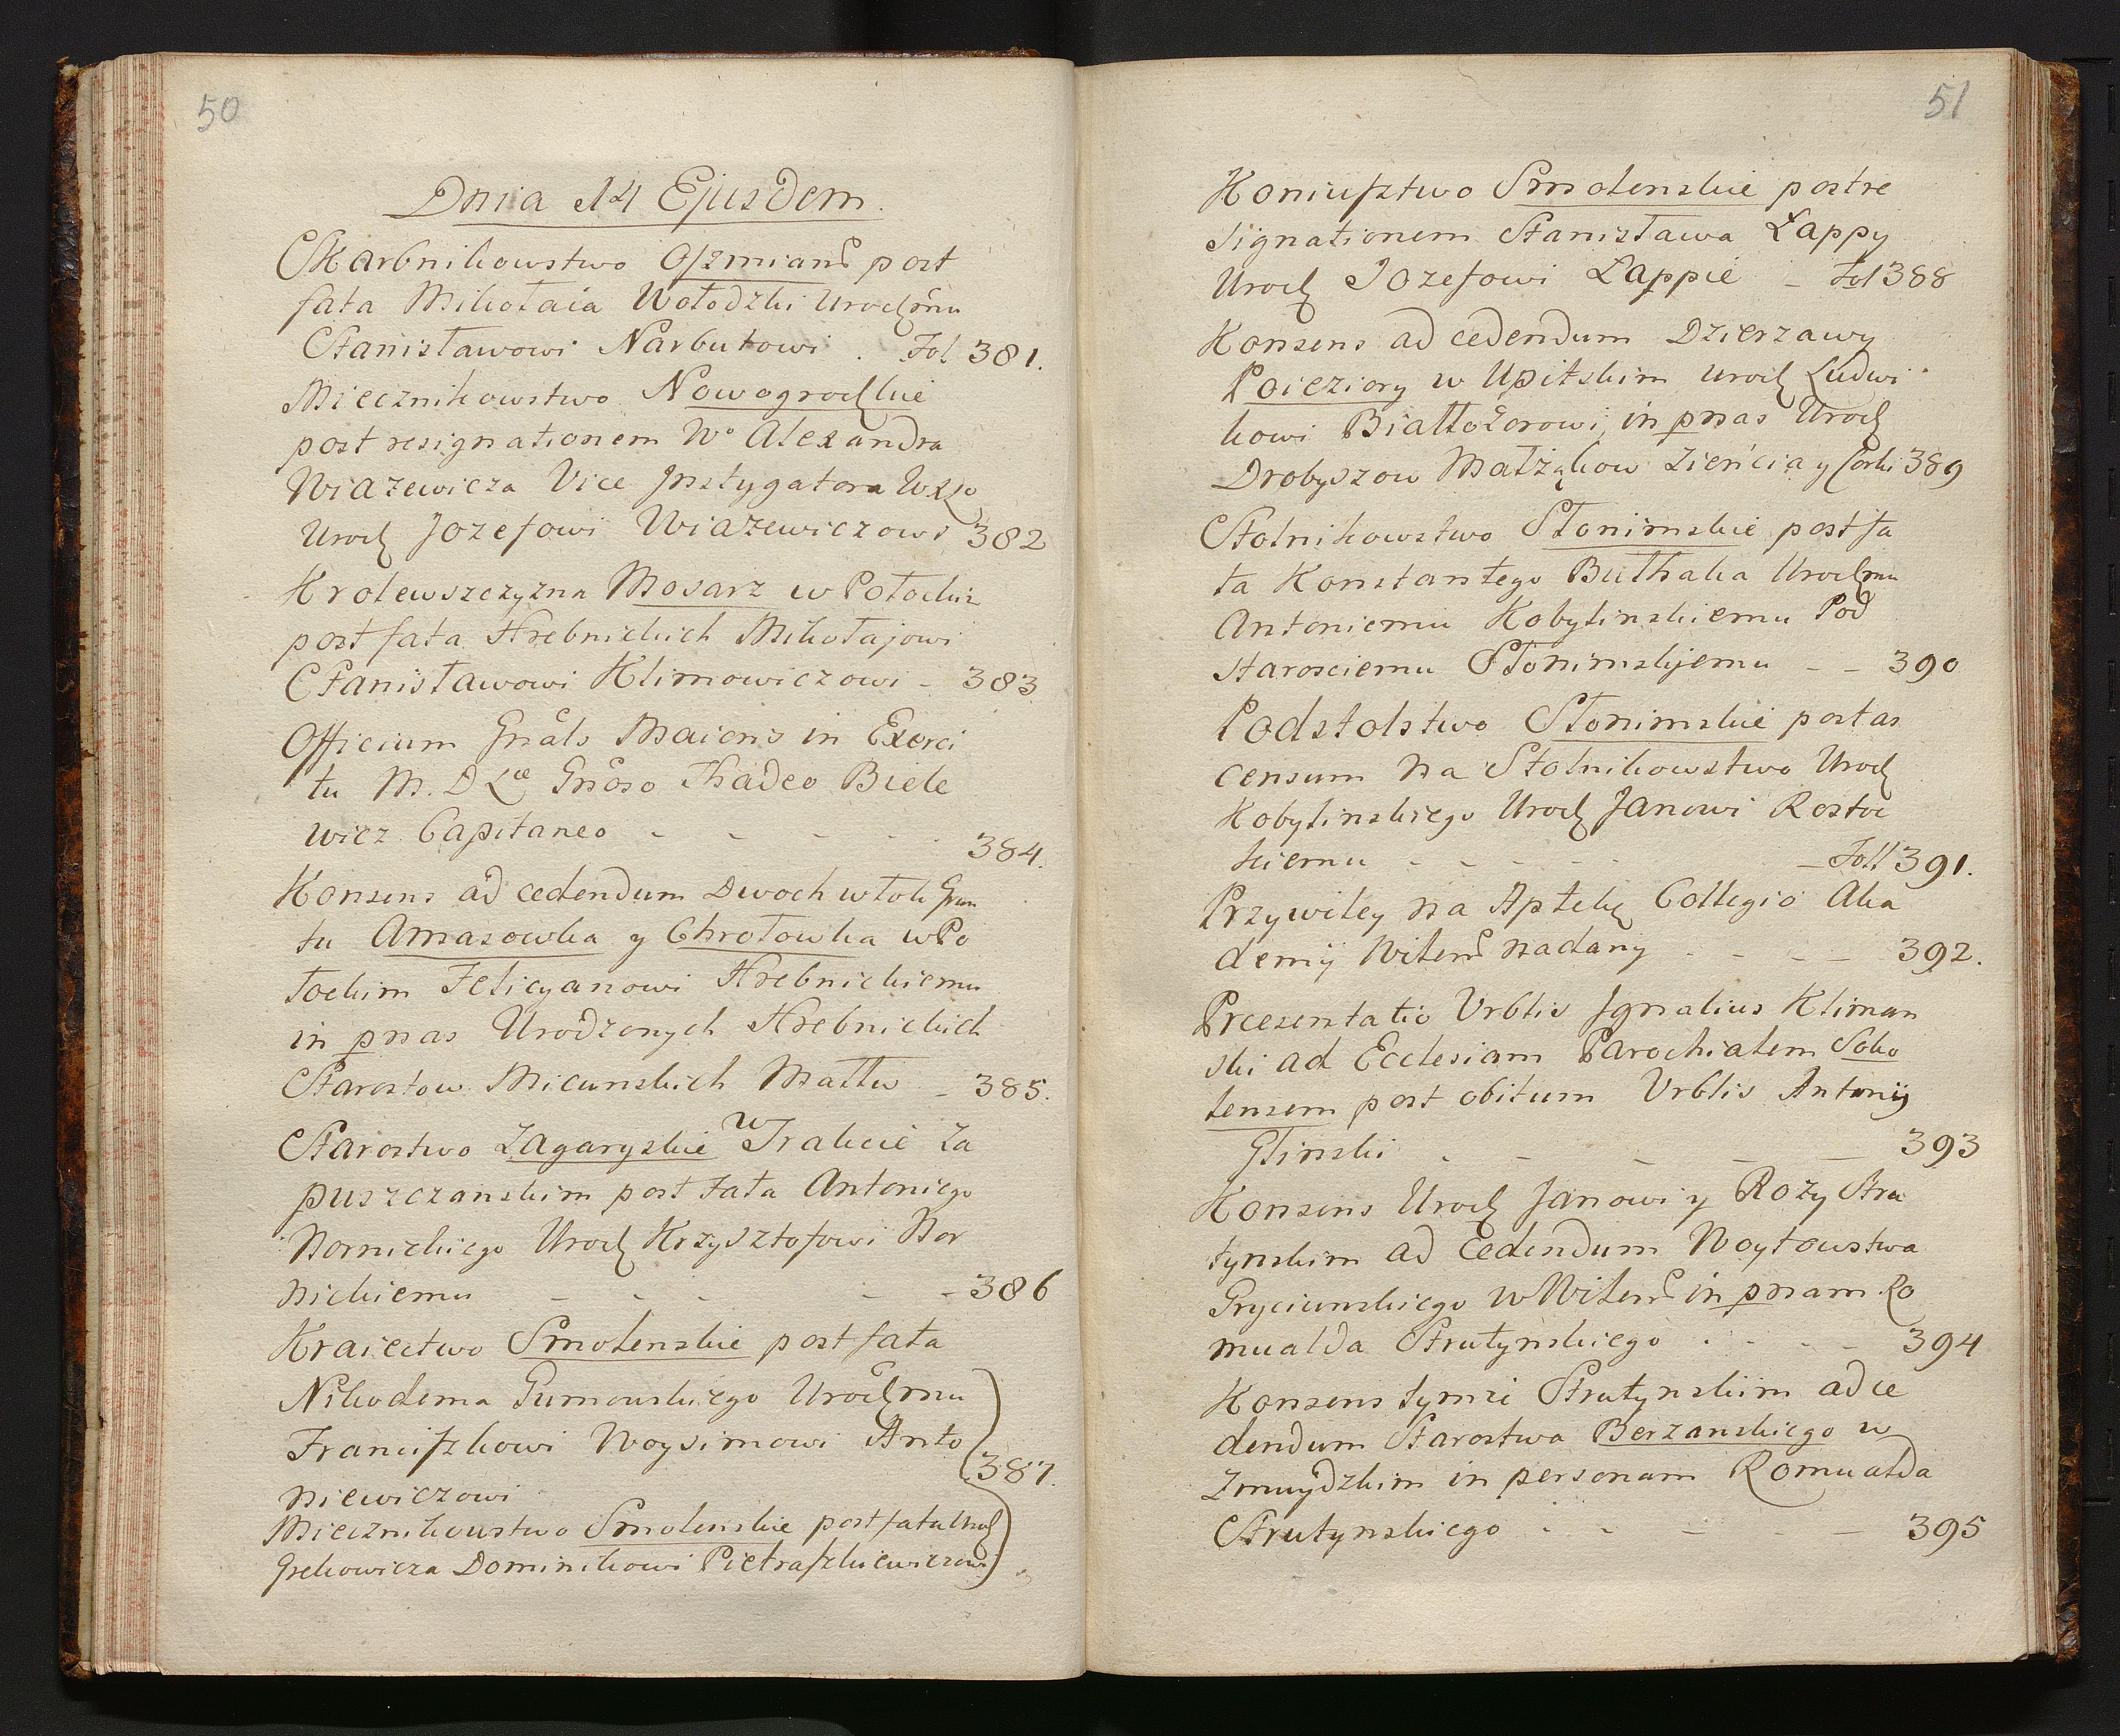 50
Dnia 14 Ejusdem.
Skarbnikowstwo Oszmians post
fata Mikołaia Wołodzki Urodzmu
Stanisławowi Narbutowi . Fol 381.
Miecznikowstwo Nowogrodzkie
post resignationem Wo Alexandra
Wiazewicza Vice Jnstygatora WXL
Urodz Jozefowi Wiazewiczowi 382
Krolewszczyzna Mosarz w Połockim
post fata Hrebnickich Mikołajowi
Stanisławowi Klimowiczowi - 383
Officium Gnals Maioris in Exerci
tu M. D Lce Gnoso Thadeo Biele
wicz Capitaneo - - - - - 384.
Konsens ad cedendum Dwoch włok Grun
tu Amasowka y Chrołowka w Po
łockim Felicyanowi Hrebnickiemu
in pnas Urodzonych Hrebnickich
Starostow Micunskich Małłw - 385.
Starostwo Zagaryskie w Trakcie Za
puszczanskim post fata Antoniego
Nornickiego Urodz Krzysztofowi Nor
nickiemu - - - - - 386
Kraiectwo Smolenskie post fata
Nikodema Gumowskiego Urodzmu
Franciszkowi Woysimowi Anto
niewiczowi 387.
Miecznikowstwo Smolenskie post fata Urodz
Grekowicza Dominikowi Pietraszkiewiczowi
51
Koniusztwo Smolenskie post re
signationem Stanisława Łappy
Urodz Jozefowi Łappie - Fol 388
Konsens ad cedendum Dzierzawy
Poieziory w Upitskim Urodz Ludwi
kowi Białłozorowi, in pnas Urodz
Drobyszow Małżąkow Zięncia y Corki 389
Stolnikowstwo Słonimskie post fa
ta Konstantego Bułhaka Urodzmu
Antoniemu Kobylinskiemu Pod
starosciemu Słonimskjemu - - 390
Podstolstwo Słonimskie post as
censum na Stolnikowstwo Urodz
Kobylinskiego Urodz Janowi Rostoc
kiemu - - - - - - Foll 391.
Przywiley na Aptekę Collegio Aka
demij Wilens nadany - - - - 392.
Prœsentatio Vrblis Jgnatius Kliman
ski ad Ecclesiam Parochialem Soko
lensem post obitum Vrblis Antonij
Glinski - - - - - 393
Konsens Urodz Janowi y Rozy Stru
tynskim ad Cedendum Woytowstwa
Gryciunskiego w Wilens in pnam Ro
mualda Strutynskiego . - - - 394
Konsens tymze Strutynskim ad ce
dendum Starostwa Berzanskiego w
Zmuydzkim in personam Romualda
Strutynskiego - - - - - 395